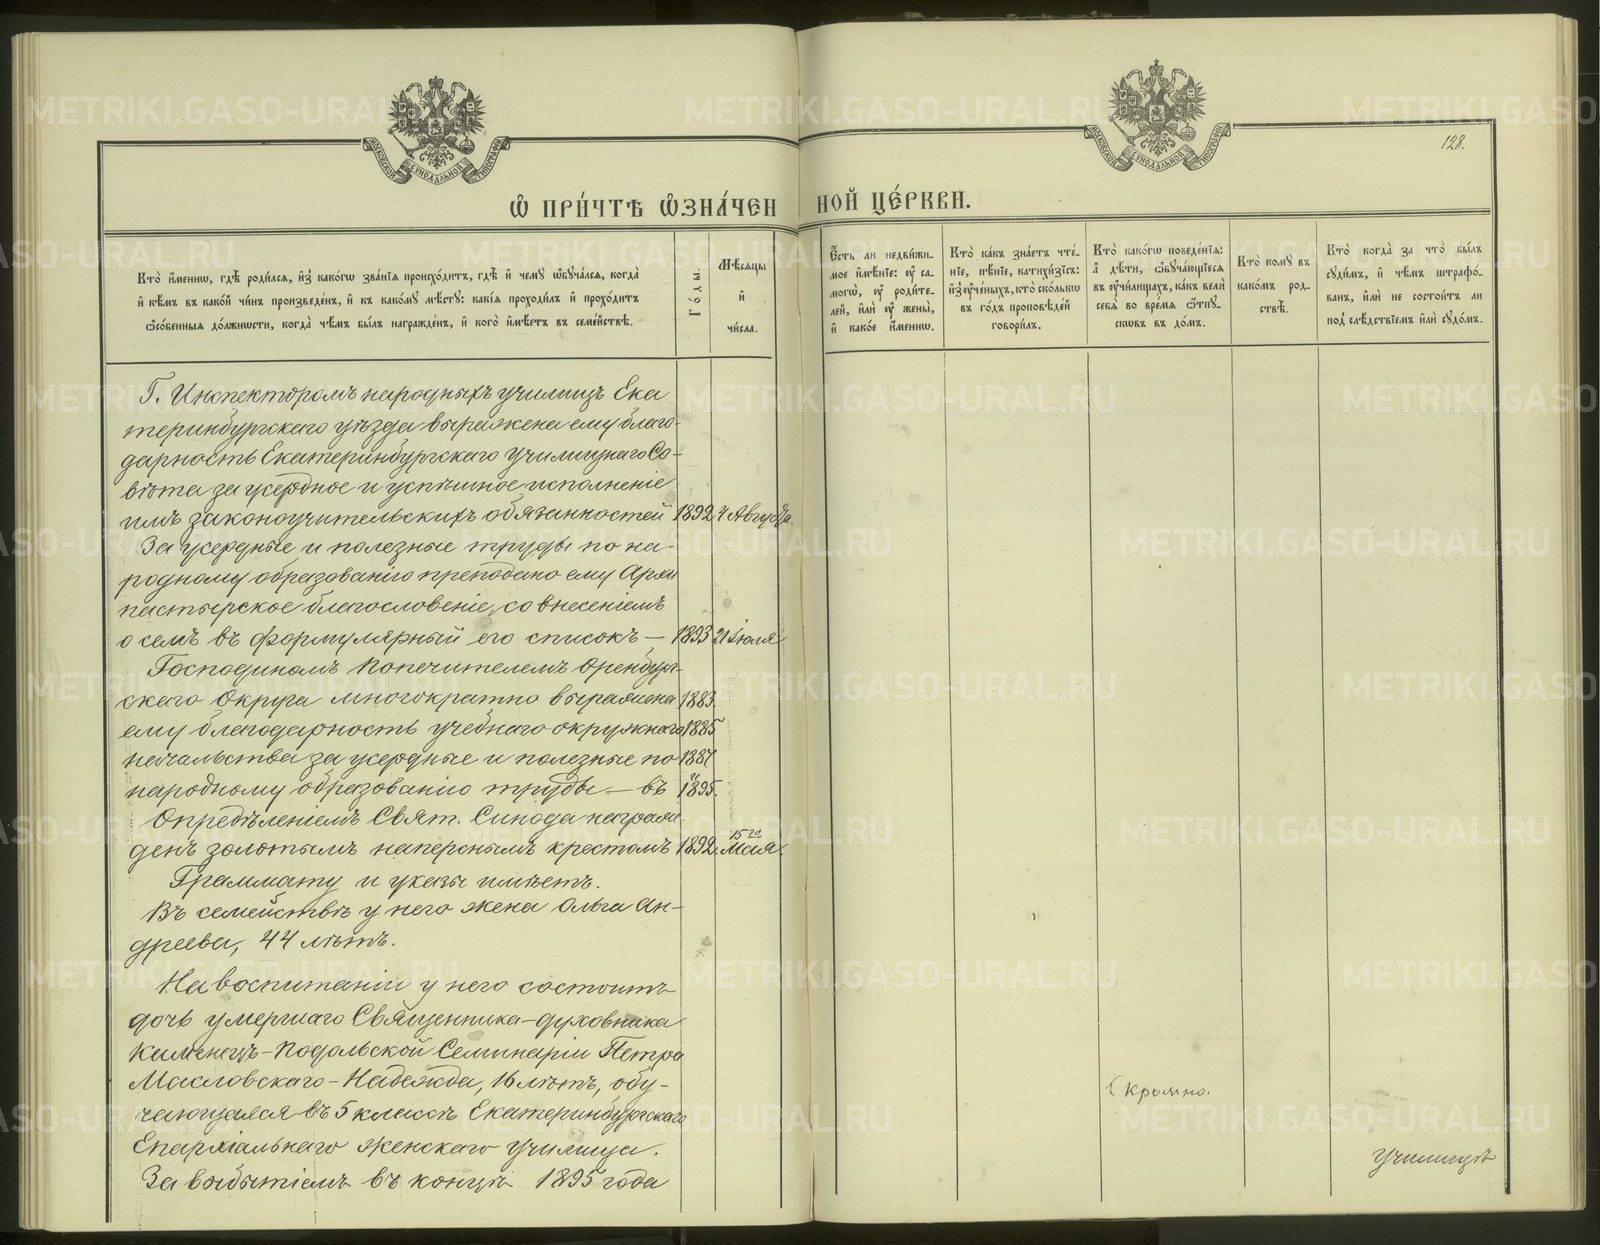 128.
Ѡ ПРИ́ЧТѢ Ѡ҆ЗНА́ЧЕННОЙ ЦЕ́РКВИ.
Кто̀ и҆́меннѡ, гдѣ̀ роди́лсѧ, и҆з̾ како́гѡ зва́нїѧ происхо́дитъ, гдѣ̀ и҆ чемꙋ̀ ѡ҆бꙋча́лсѧ, когда̀
и҆ кѣ́мъ въ како́й чи́нъ произведе́нъ, и҆ къ како́мꙋ мѣ́стꙋ: какі́ѧ проходи́лъ и҆ прохо́дитъ
ѻ҆со́бенныѧ до́лжнѡсти, когда̀ чѣ́мъ бы́лъ награжде́нъ, и҆ кого̀ и҆мѣ́етъ въ семе́йствѣ.
Го́ды.
Мѣ́сѧцы
и҆
чи́сла.
Є҆́сть ли недви́жи-
мое и҆мѣ́нїе: ᲂу҆ са-
могѡ̀, ᲂу҆ роди́те-
лей, и҆лѝ ᲂу҆ жены̀,
и҆ како́е и҆́меннѡ.
Кто̀ ка́къ зна́етъ чте́-
нїе, пѣ́нїе, катихи́зїсъ:
и҆з̾ ᲂу҆че́ныхъ, кто̀ ско́лькѡ
въ го́дъ проповѣ́дей
говори́лъ.
Кто̀ како́гѡ поведе́нїѧ:
а҆ дѣ́ти, ѡ҆бꙋча́ющїесѧ
въ ᲂу҆чи́лищахъ, ка́къ велѝ
себѧ̀ во вре́мѧ ѿпꙋ-
скѡвъ въ до́мъ.
Кто̀ комꙋ̀ въ
како́мъ род-
ствѣ̀.
Кто̀ когда̀ за что̀ бы́лъ
сꙋди́мъ, и҆ чѣ́мъ штрафо́-
ванъ, и҆лѝ не состои́тъ ли
под̾ слѣ́дствїемъ и҆лѝ сꙋдо́мъ.
Г. Инспекторомъ народныхъ училищъ Ека
теринбургскаго уѣзда выражена ему благо-
дарность Екатеринбургскаго Училищнаго Со-
вѣта за усердное и успѣшное исполненіе
имъ законоучительскихъ обязанностей 1892 4 Августа.
За усердные и полезные труды по на-
родному образованію преподано ему Архи
пастырское благословеніе, со внесеніемъ
о семъ въ формулярный его списокъ — 1893 21 Іюля
Господиномъ Попечителемъ Оренбург-
скаго Округа многократно выражена 1883.
ему благодарность учебнаго окружнаго 1885
начальства за усердные и полезные по 1887
народному образованію труды — въ и 1895.
Опредѣленіемъ Свят. Синода награж-
денъ золотымъ наперснымъ крестомъ 1892. 15го Мая.
Граммату и указы имѣетъ.
Въ семействѣ у него жена Ольга Ан-
дреева, 44 лѣтъ.
На воспитаніи у него состоитъ
дочь умершаго Священника-духовника
Каменецъ-Подольской Семинаріи Петра
Масловскаго - Надежда, 16 лѣтъ, обу-
чающаяся въ 5 классѣ Екатеринбургскаго
Епархіальнаго женскаго Училища.
Скромно.
За выбытіемъ въ концѣ 1895 года
училищѣ
МОСКОВСКОЙ СУНОДАЛЬНОЙ ТИПОГРАФІИ
МОСКОВСКОЙ СУНОДАЛЬНОЙ ТИПОГРАФІИ
METRIKI.GASO-URAL.RU